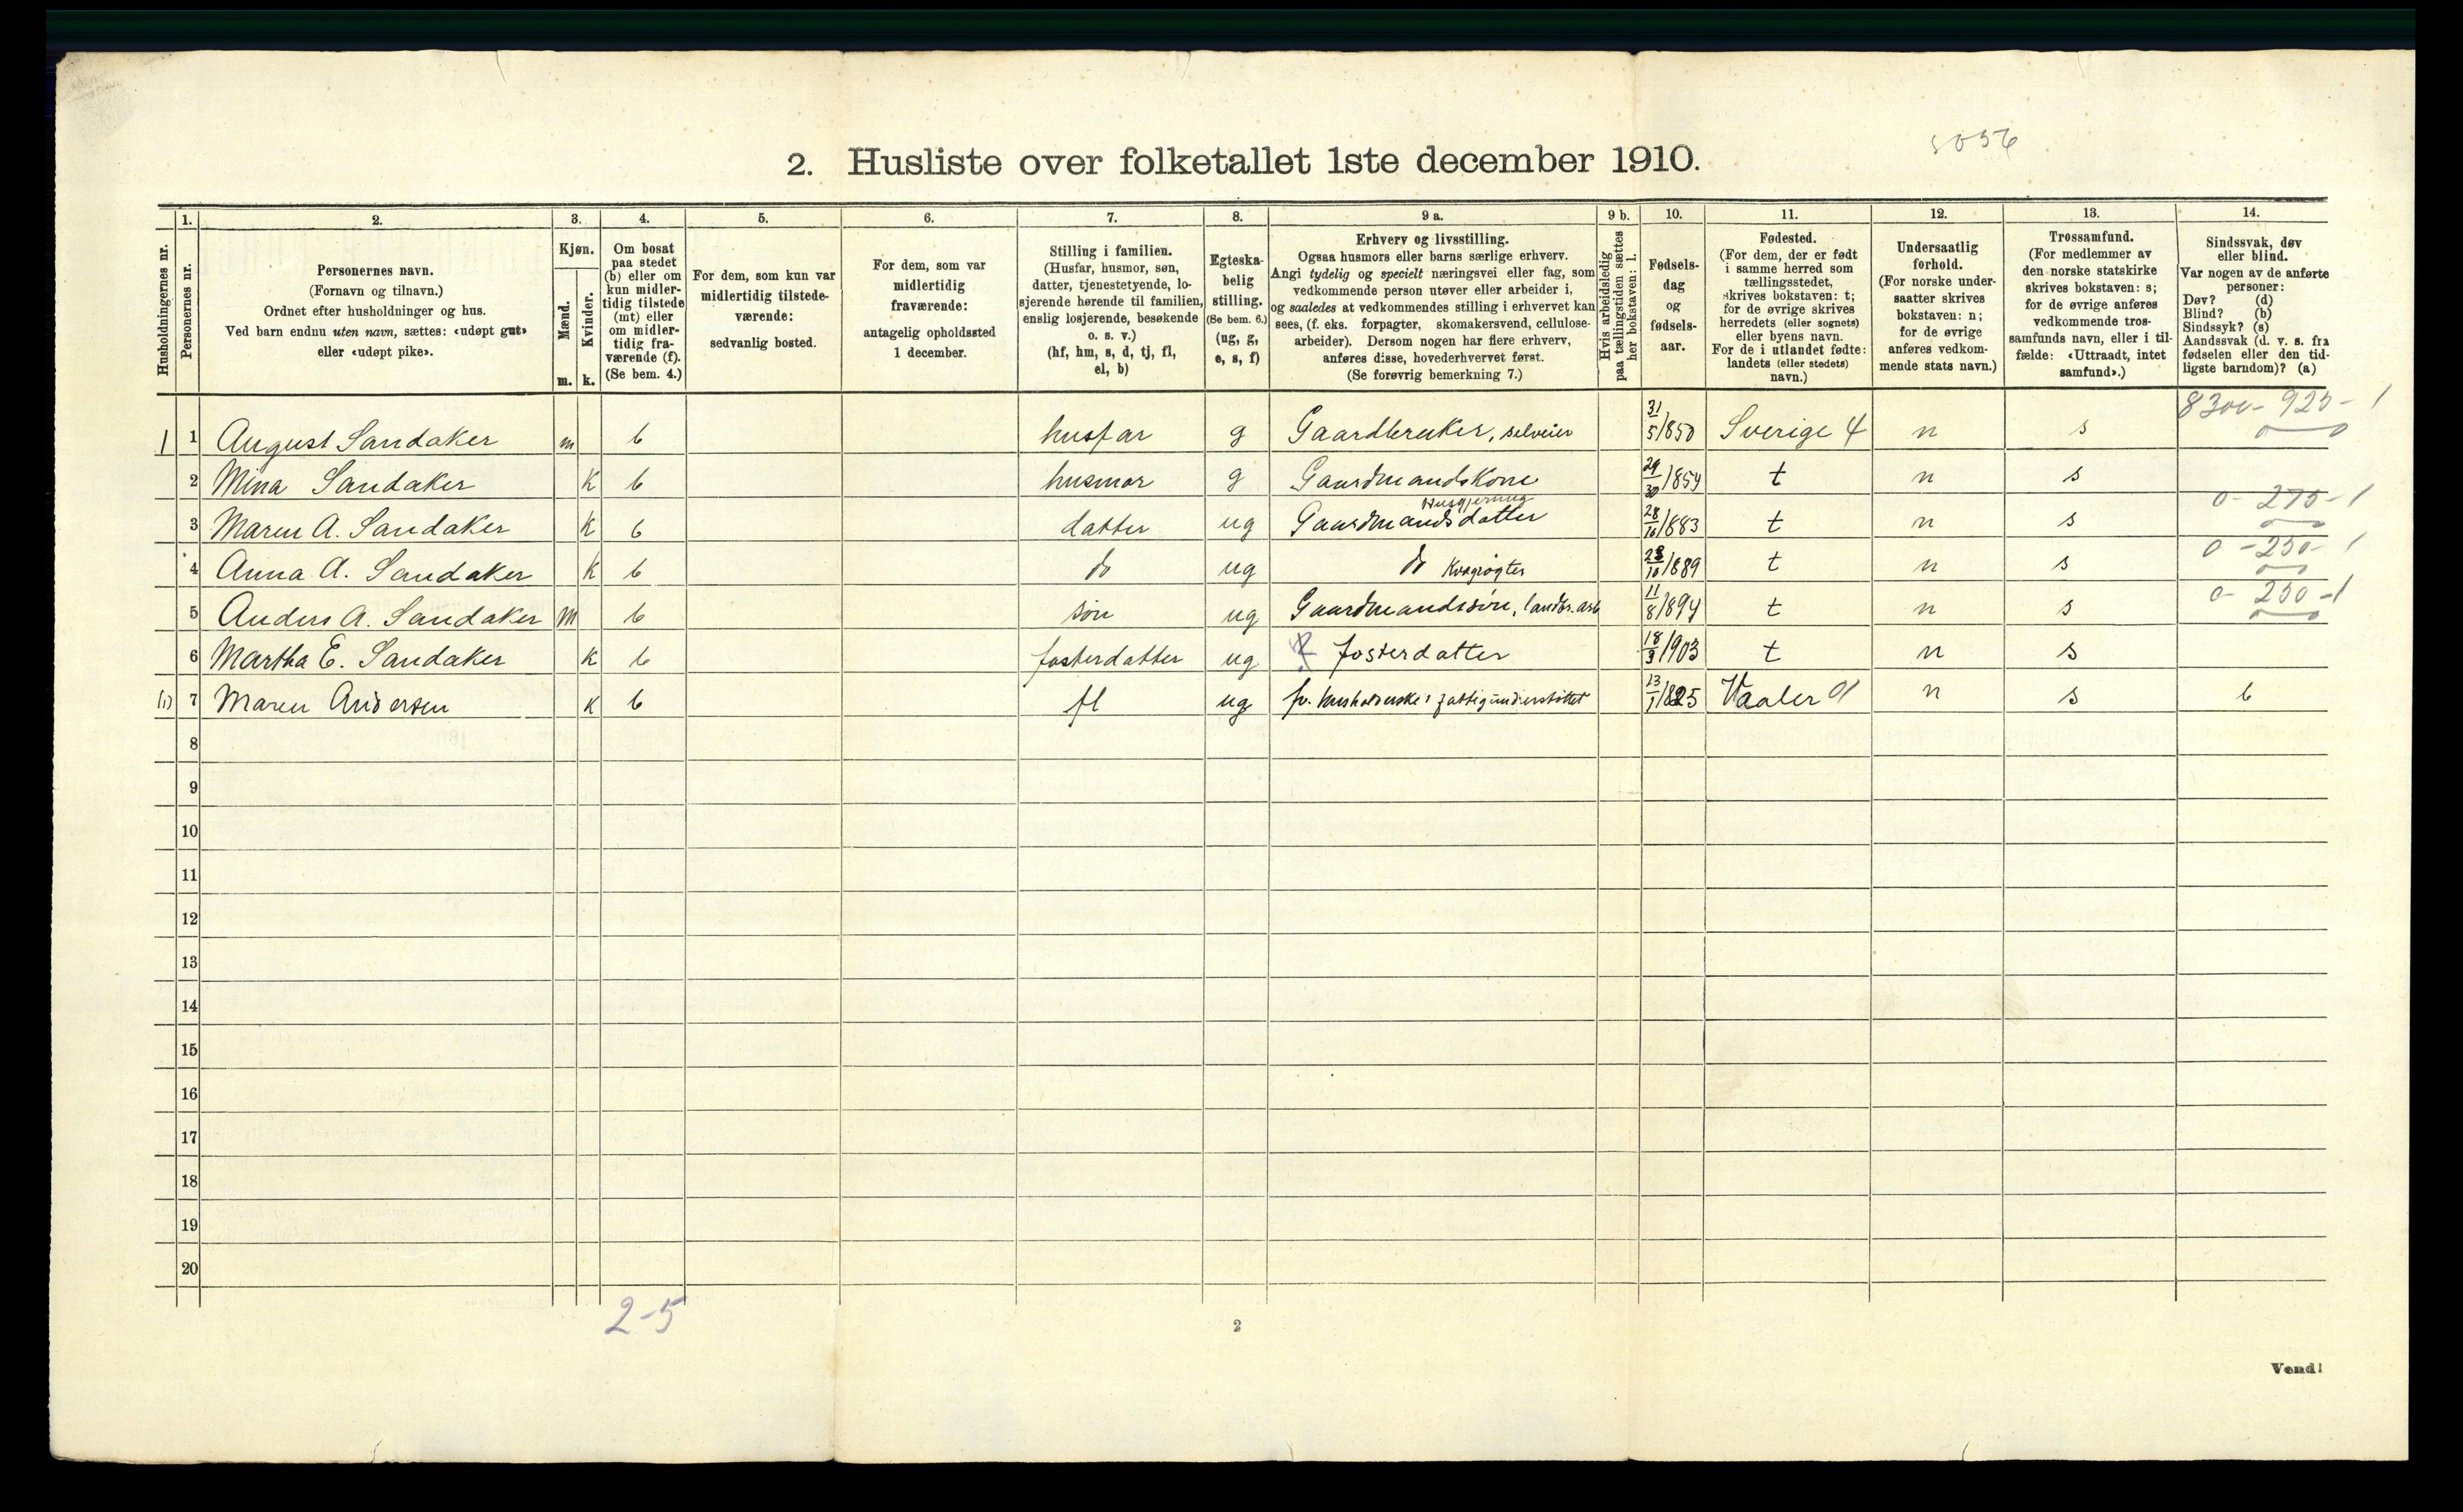 5056
2. Husliste over folketallet 1ste december 1910.
Husholdningernes nr.
1.
Personernes nr.
2.
Personernes navn.
(Fornavn og tilnavn.)
Ordnet efter husholdninger og hus.
Ved barn endnu uten navn, sættes: «udøpt gut»
eller «udøpt pike».
3.
Kjøn.
Mænd.
m.
Kvinder.
k.
4.
Om bosat
paa stedet
(b) eller om
kun midler-
tidig tilstede
(mt) eller
om midler-
tidig fra-
værende (f).
(Se bem. 4.)
5.
For dem, som kun var
midlertidig tilstede-
værende:
sedvanlig bosted.
6.
For dem, som var
midlertidig
fraværende:
antagelig opholdssted
1 december.
7.
Stilling i familien.
(Husfar, husmor, søn,
datter, tjenestetyende, lo-
sjerende hørende til familien,
enslig losjerende, besøkende
o. s. v.)
(hf, hm, s, d, tj, fl,
el, b)
8.
Egteska-
belig
stilling.
(Se bem. 6.)
(ug, g,
e, s, f)
9 a.
Erhverv og livsstilling.
Ogsaa husmors eller barns særlige erhverv.
Angi tydelig og specielt næringsvei eller fag, som
vedkommende person utøver eller arbeider i,
og saaledes at vedkommendes stilling i erhvervet kan
sees, (f. eks. forpagter, skomakersvend, cellulose-
arbeider). Dersom nogen har flere erhverv,
anføres disse, hovederhvervet først.
(Se forøvrig bemerkning 7.)
9 b.
Hvis arbeidsledig
paa tællingstiden sættes
her bokstaven: l.
10.
Fødsels-
dag
og
fødsels-
aar.
11.
Fødested.
(For dem, der er født
i samme herred som
tællingsstedet,
skrives bokstaven: t;
for de øvrige skrives
herredets (eller sognets)
eller byens navn.
For de i utlandet fødte:
landets (eller stedets)
navn.)
12.
Undersaatlig
forhold.
(For norske under-
saatter skrives
bokstaven: n;
for de øvrige
anføres vedkom-
mende stats navn.)
13.
Trossamfund.
(For medlemmer av
den norske statskirke
skrives bokstaven: s;
for de øvrige anføres
vedkommende tros-
samfunds navn, eller i til-
fælde: «Uttraadt, intet
samfund».)
14.
Sindssvak, døv
eller blind.
Var nogen av de anførte
personer:
Døv? (d)
Blind? (b)
Sindssyk? (s)
Aandssvak (d. v. s. fra
fødselen eller den tid-
ligste barndom)? (a)
8300 - 925 - 1
1 1 August Sandaker m b husfar g Gaardbruker, selveier 31/5 1850 Sverige 4 n s
2 Mina Sandaker k b husmor g Gaardmandskone 29/30 1854 t n s
Husgjerning
0 - 275 - 1
3 Maren A. Sandaker k b datter ug Gaardmandsdatter 28/10 1883 t n s
0 - 250 - 1
4 Anna A. Sandaker k b do ug do Kvægrøgter 23/10 1889 t n s
0 - 250 - 1
5 Anders A. Sandaker m b søn ug Gaardmandssøn, landbr. arb 11/8 1894 t n s
6 Martha E. Sandaker k b fosterdatter ug fosterdatter 18/3 1903 t n s
(1) 7 Maren Andersen k b fl ug fv. husholderske, fattigunderstøttet 13/1 1825 Vaaler 01 n s b
8
9
10
11
12
13
14
15
16
17
18
19
20
2-5
2
Vend!